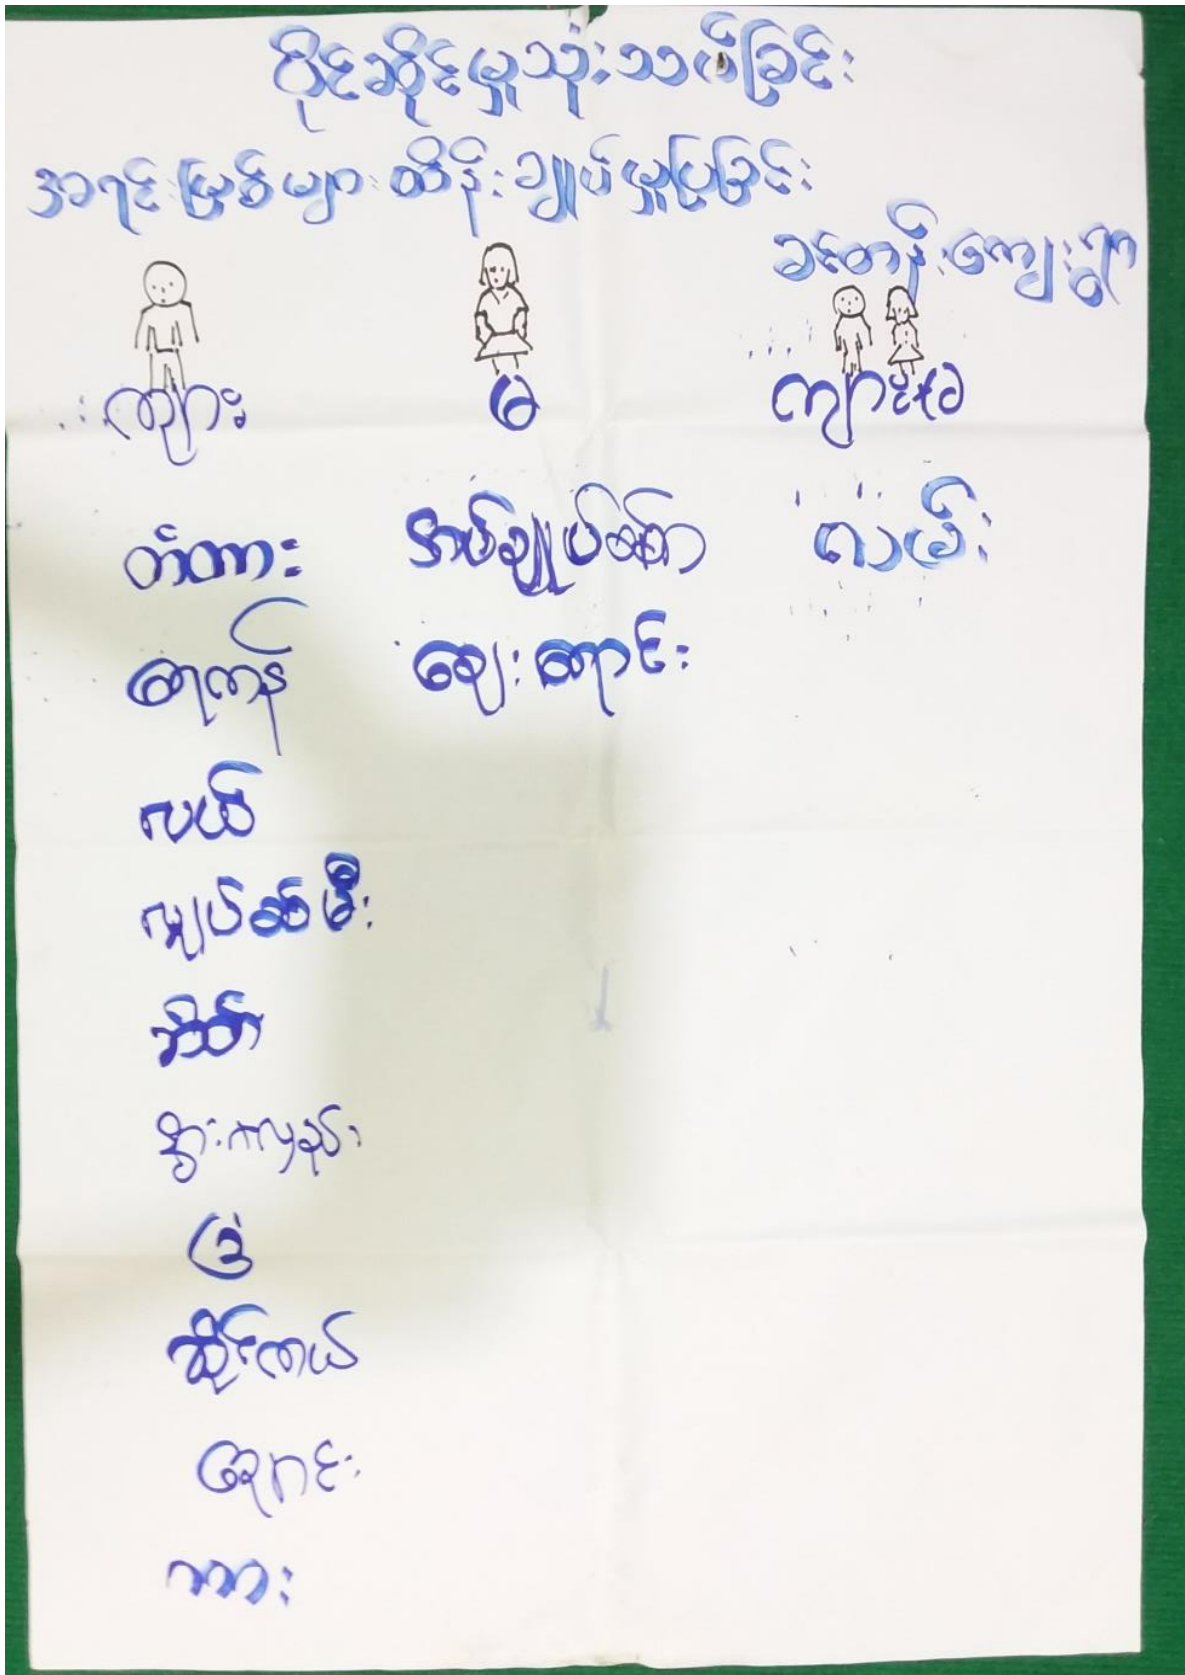 ပိုင်ဆိုင်မှုသုံးသပ်ခြင်း
အရင်းမြစ်များ ထိန်းချုပ်မှုပြခြင်း
ကျေးရွာ
ကျား မ ကျား+မ
တံတား အပ်ချုပ်ဆိုင် လမ်း
ရေကန် ဈေးရောင်း
လယ်
လျှပ်စစ်မီး
အိမ်
နွားလှည်း
ခြံ
ဆိုင်ကယ်
ချောင်း
ကား